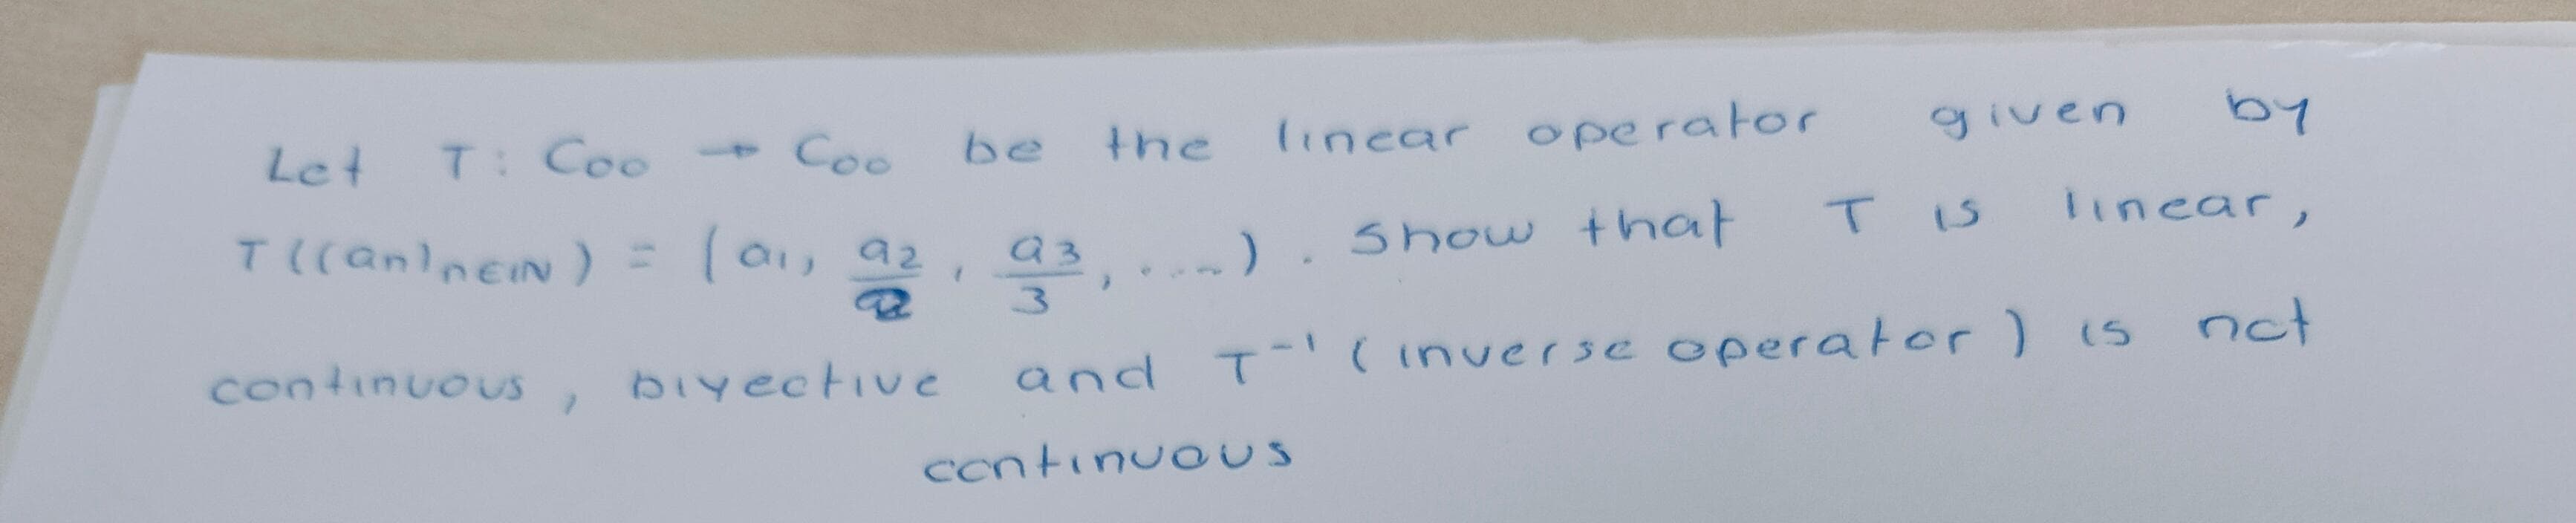 Let T: C₀₀ → C₀₀ be the linear operator given by
T((an)n∈ℕ) = (a₁, a₂/2, a₃/3, ....). Show that T is linear,
continuous, biyective and T⁻¹ (inverse operator) is not
continuous